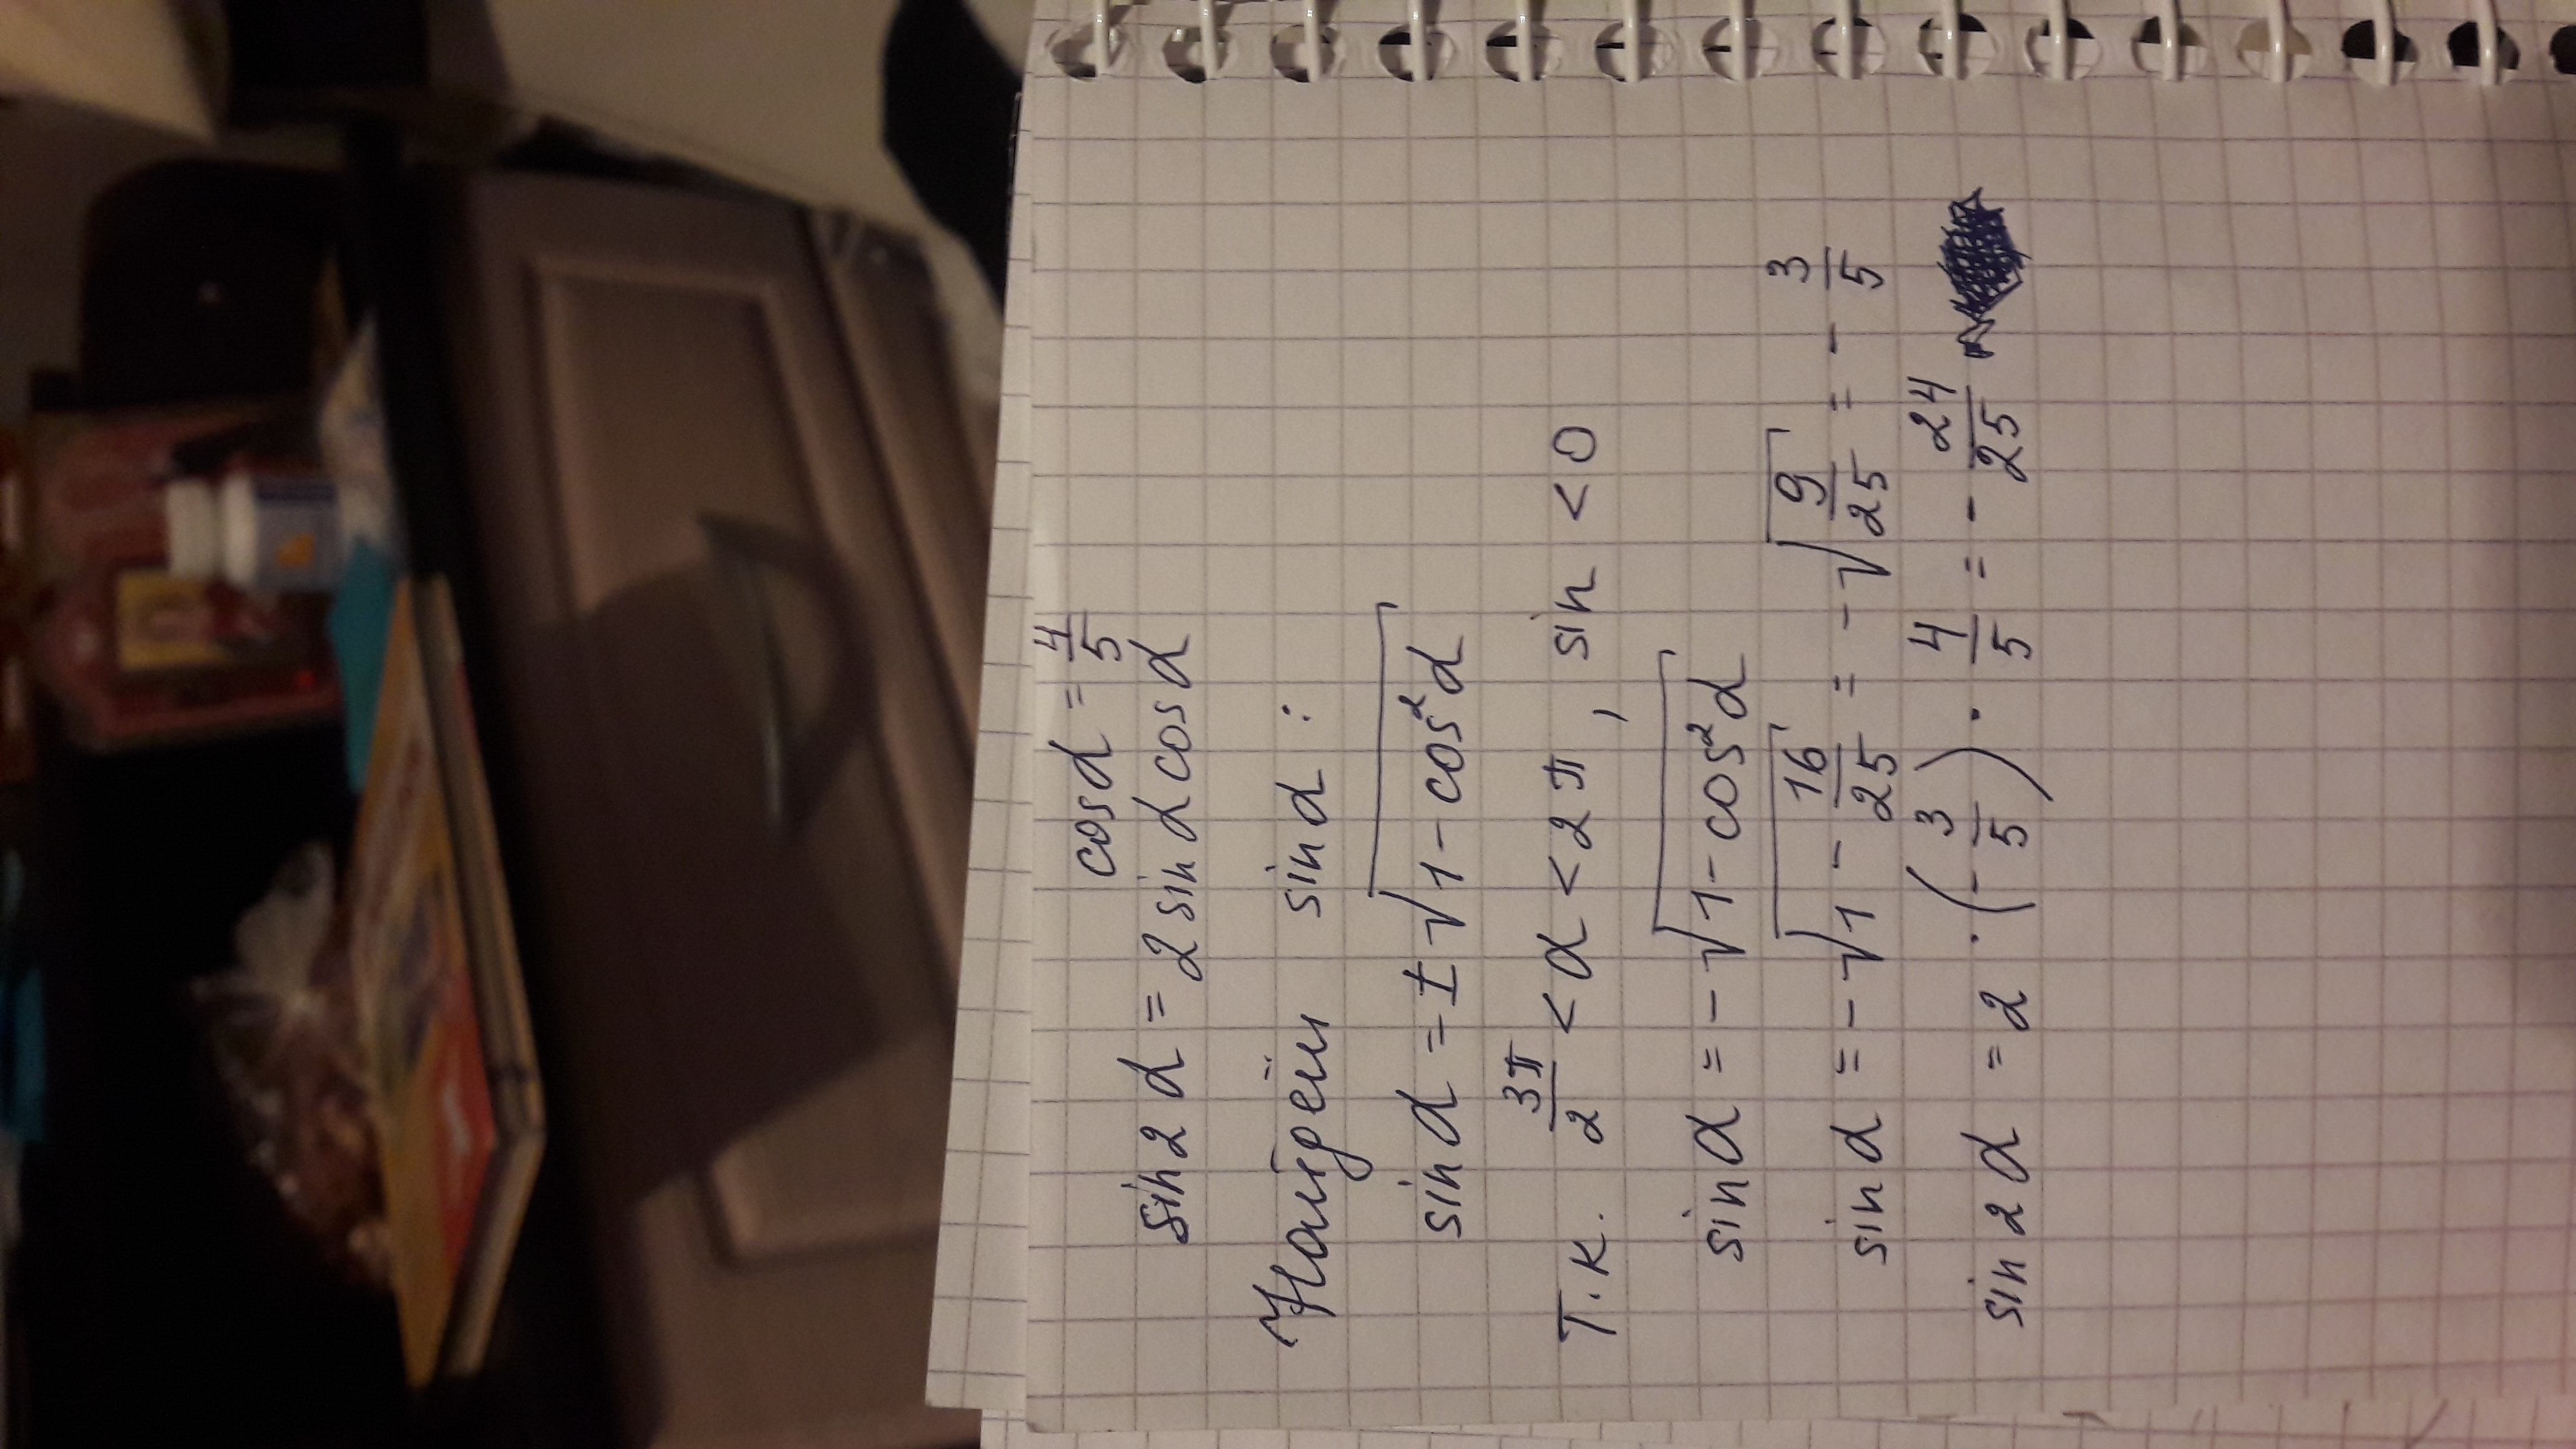 cos α = 4/5
sin 2α = 2 sin α cos α
Найдём sin α :
sin α = ±√(1 - cos²α)
Т.к. 3π/2 < α < 2π, sin < 0
sin α = -√(1 - cos²α)
sin α = -√(1 - 16/25) = -√(9/25) = - 3/5
sin 2α = 2 · (- 3/5) · 4/5 = - 24/25